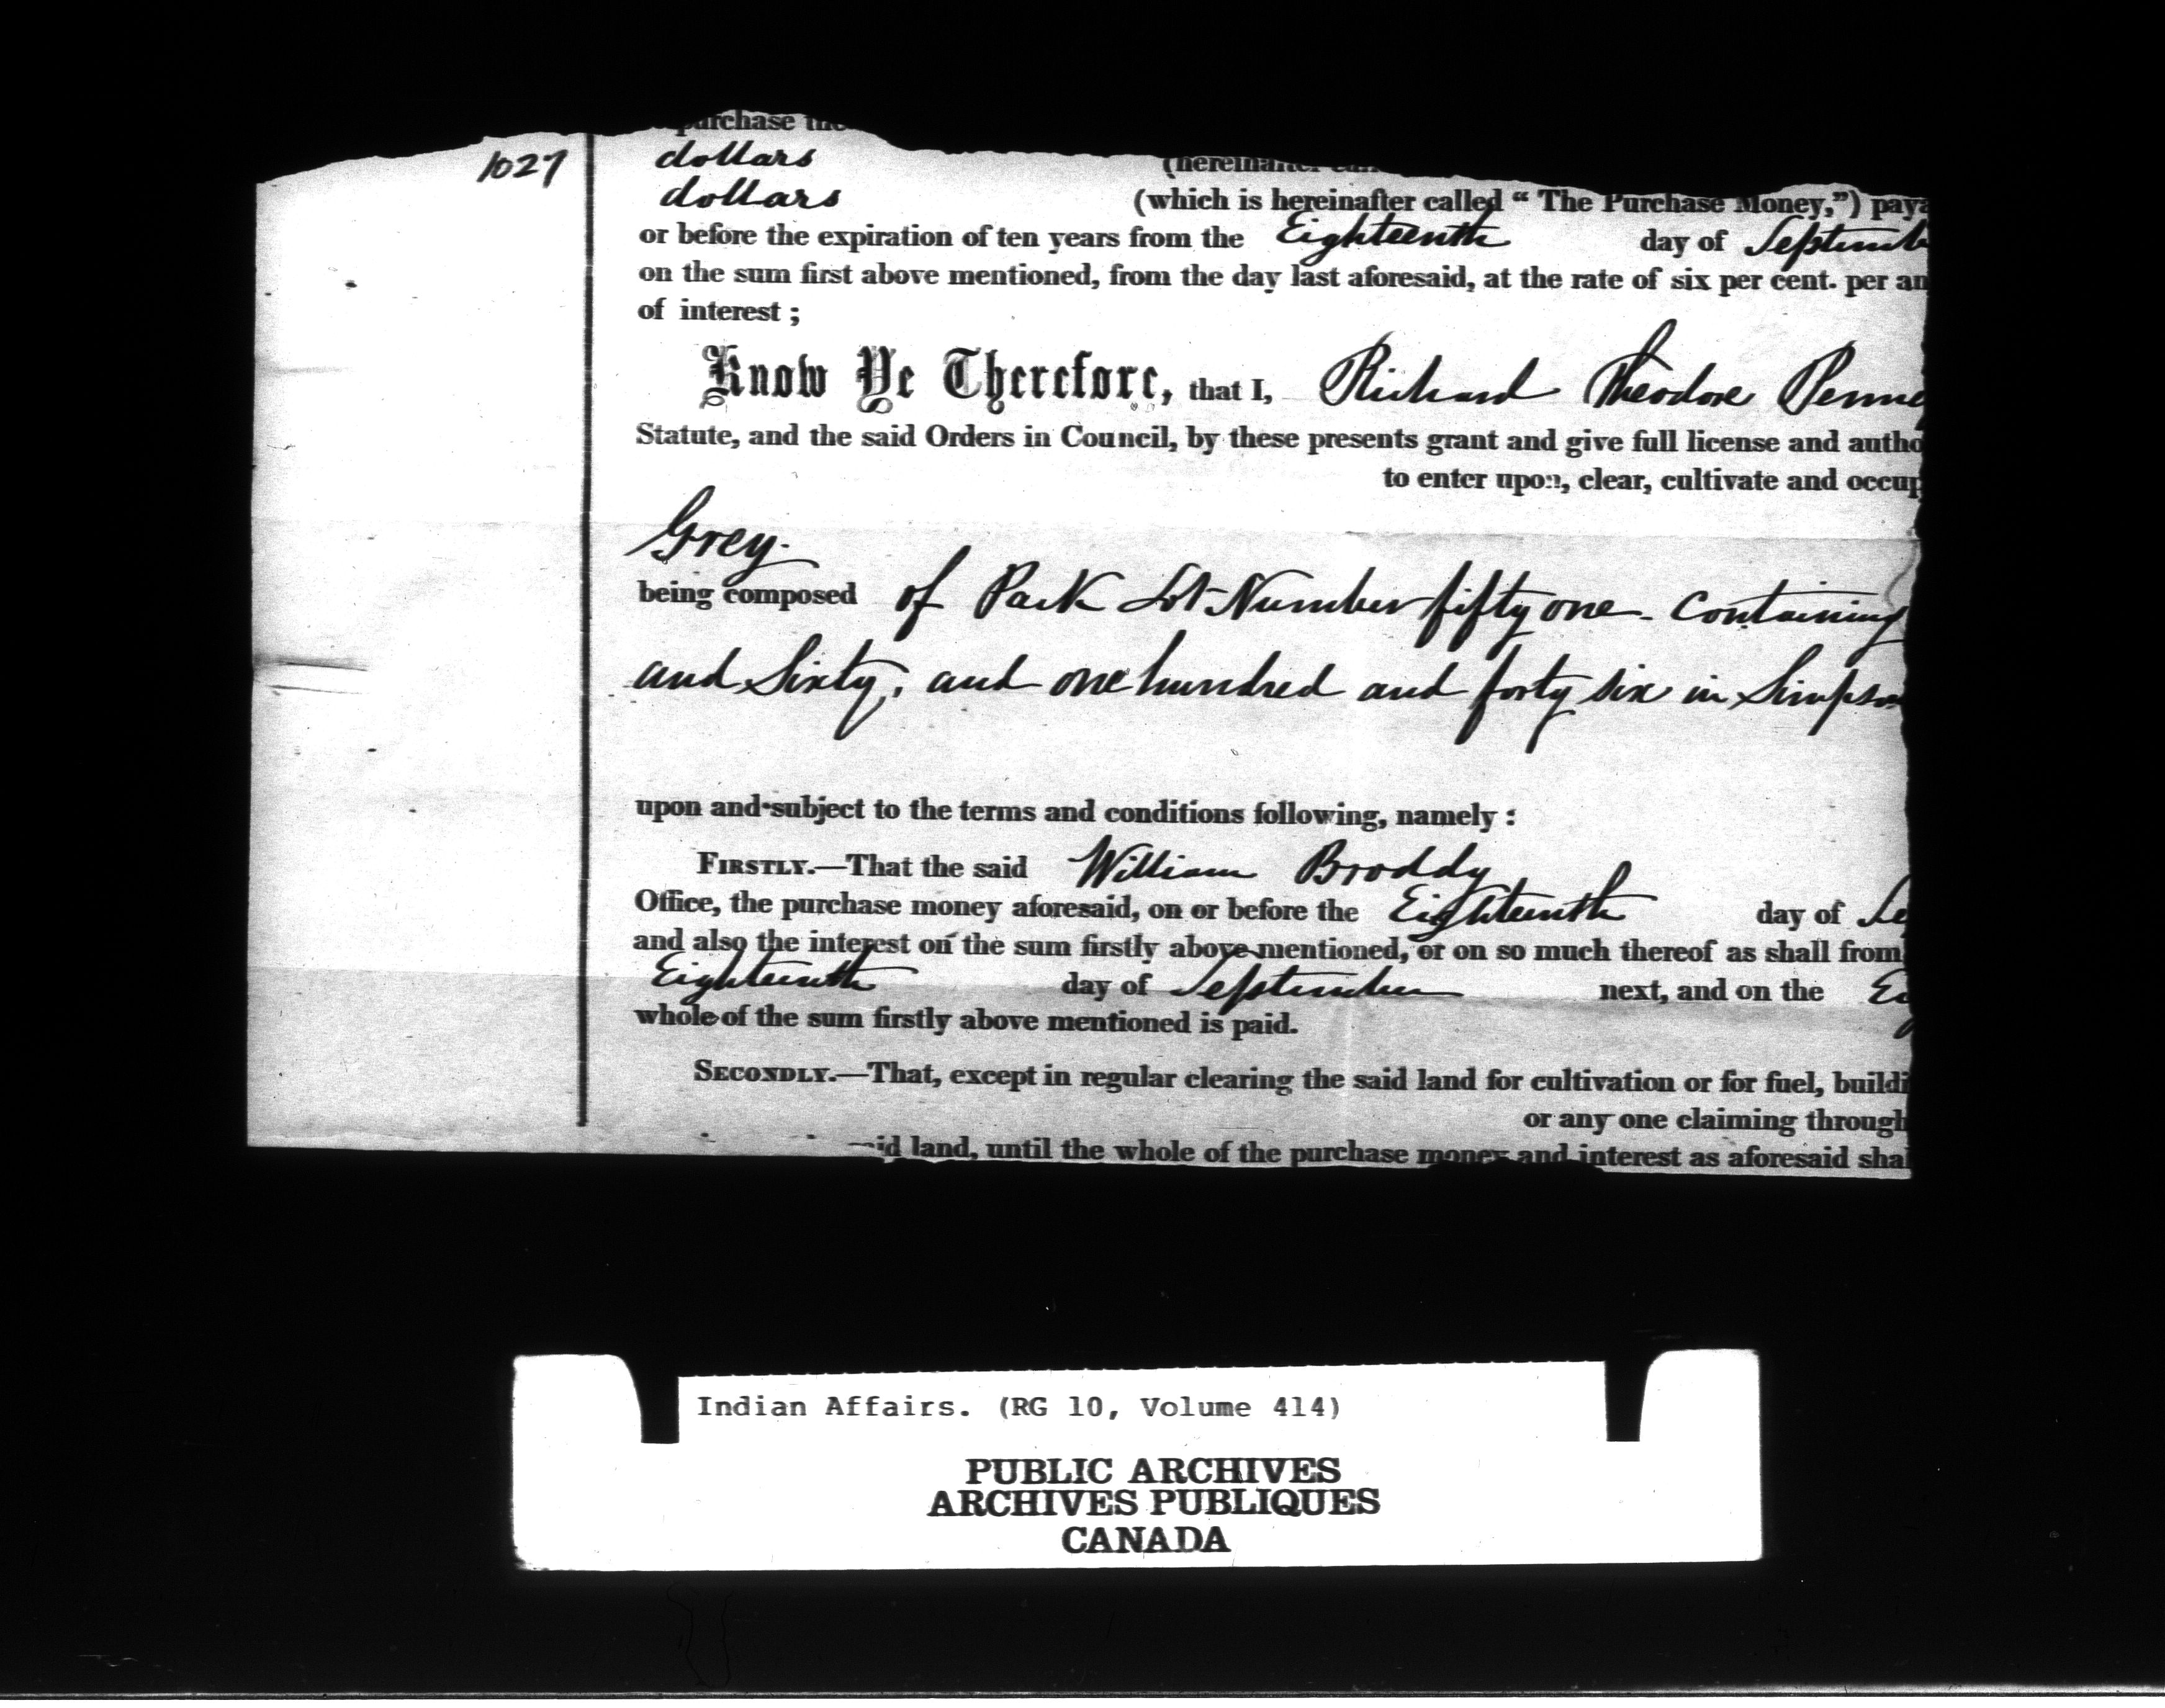 purchase the
1027
dollars (hereinafter
dollars (which is hereinafter called “ The Purchase Money,”) paya
or before the expiration of ten years from the Eighteenth day of Septemb
on the sum first above mentioned, from the day last aforesaid, at the rate of six per cent. per an
of interest ;
Know Ye Therefore, that I, Richard Theodore Penne
Statute, and the said Orders in Council, by these presents grant and give full license and autho
to enter upon, clear, cultivate and occup
Grey.
being composed of Park Lot Number fifty one - Containing
and Sixty, and one hundred and forty six in Simpson
upon and subject to the terms and conditions following, namely :
FIRSTLY.—That the said William Broddy
Office, the purchase money aforesaid, on or before the Eighteenth day of Se
and also the interest on the sum firstly above mentioned, or on so much thereof as shall from
Eighteenth day of September next, and on the Eig
whole of the sum firstly above mentioned is paid.
SECONDLY.—That, except in regular clearing the said land for cultivation or for fuel, buildi
or any one claiming through
id land, until the whole of the purchase money and interest as aforesaid shal
Indian Affairs. (RG 10, Volume 414)
PUBLIC ARCHIVES
ARCHIVES PUBLIQUES
CANADA